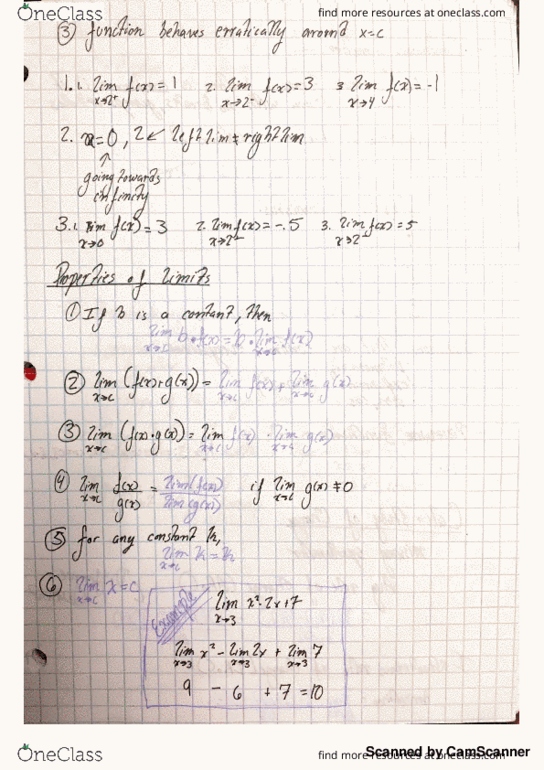 OneClass find more resources at oneclass.com
③ function behaves erratically around x=c
1. 1. lim f(x)=1 2. lim f(x)=3 3 lim f(x)=-1
x→2⁻ x→2⁺ x→4
2. x=0, 2 ↙ left lim ≠ right lim
↑
going towards
infinity
3. 1. lim f(x)=3 2. lim f(x)=-.5 3. lim f(x)=5
x→0 x→2⁻ x→2⁺
Properties of Limits
① If b is a constant, then
lim b·f(x)=b·lim f(x)
x→c x→c
② lim (f(x)+g(x))= lim f(x)+lim g(x)
x→c x→c x→c
③ lim (f(x)·g(x))=lim f(x)·lim g(x)
x→c x→c x→c
④ lim f(x)/g(x) = lim(f(x))/lim(g(x)) if lim g(x)≠0
x→c x→c
⑤ for any constant k,
lim k=k
x→c
⑥ lim x=c
x→c
Example
lim x²-2x+7
x→3
lim x² - lim 2x + lim 7
x→3 x→3 x→3
9 - 6 + 7 = 10
OneClass find more resources at oneclass.com
Scanned by CamScanner